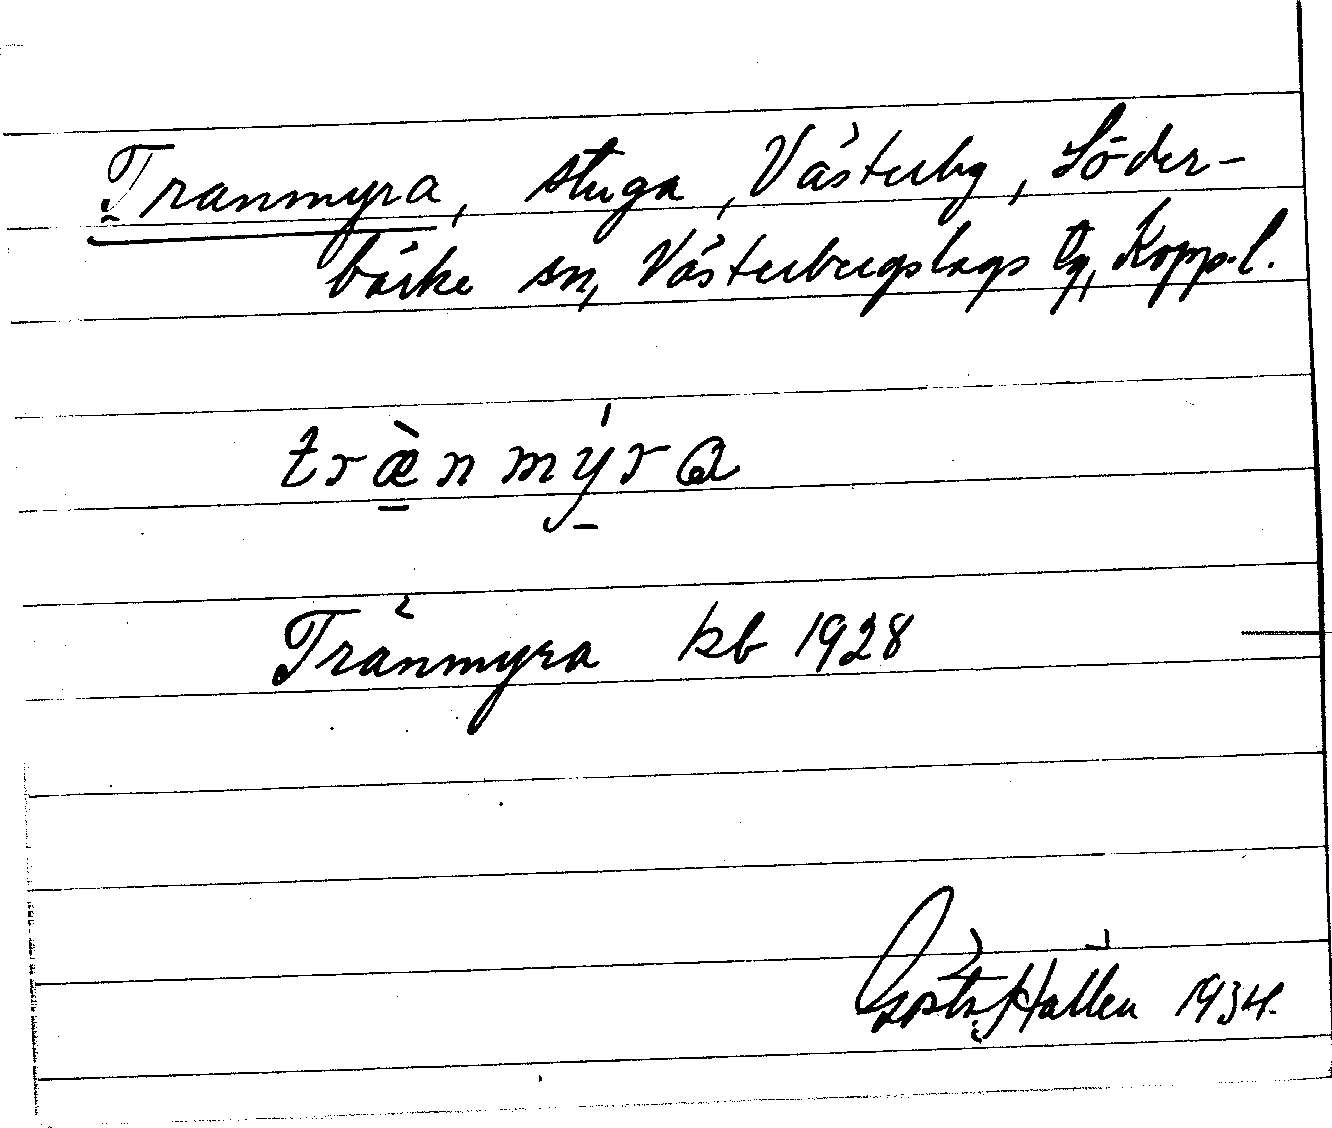 Tranmyra, stuga, Västerby, Söder-
bärke sn, Västerbergslags tg, Kopp. l.
træ̀nmýra
Tränmyra kb 1928
Gösta Hallén 1934.